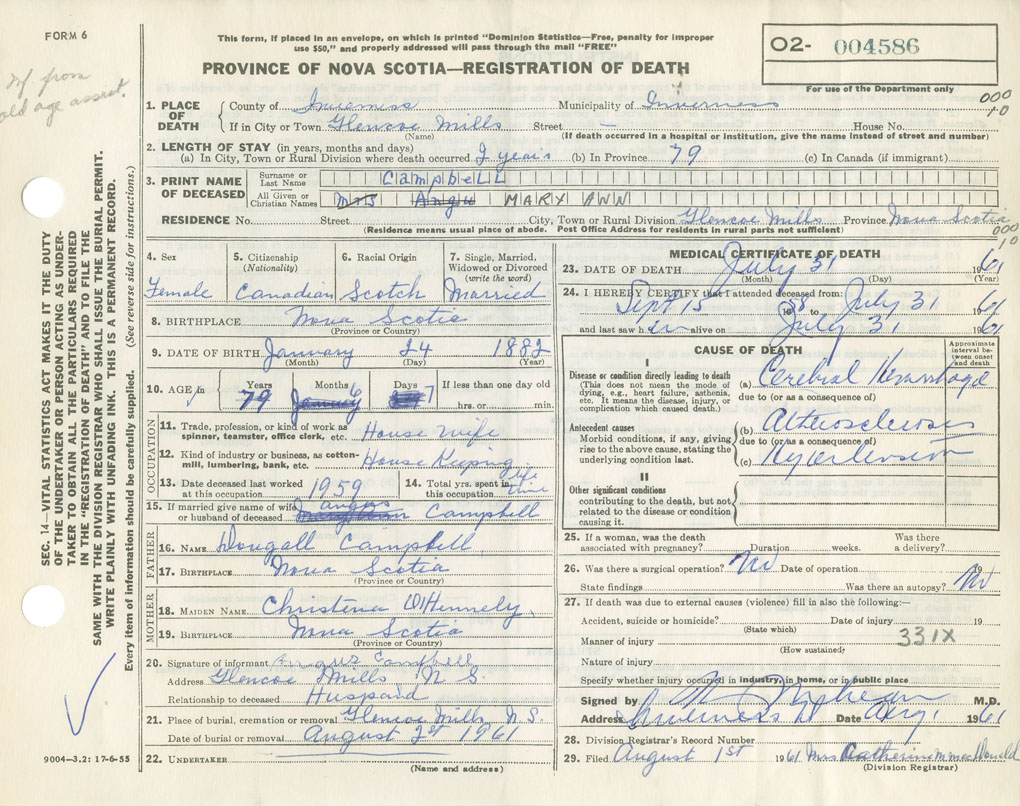 FORM 6
This form, if placed in an envelope, on which is printed "Dominion Statistics—Free, penalty for improper
use $50," and properly addressed will pass through the mail "FREE"
PROVINCE OF NOVA SCOTIA—REGISTRATION OF DEATH
02- 004586
For use of the Department only
old age assist.
SEC. 14—VITAL STATISTICS ACT MAKES IT THE DUTY
OF THE UNDERTAKER OR PERSON ACTING AS UNDER-
TAKER TO OBTAIN ALL THE PARTICULARS REQUIRED
IN THE "REGISTRATION OF DEATH" AND TO FILE THE
SAME WITH THE DIVISION REGISTRAR WHO SHALL ISSUE THE BURIAL PERMIT.
WRITE PLAINLY WITH UNFADING INK. THIS IS A PERMANENT RECORD.
Every item of information should be carefully supplied. (See reverse side for instructions.)
1. PLACE OF DEATH County of Inverness Municipality of Inverness
If in City or Town Glencoe Mills Street — House No.
(Name) (If death occurred in a hospital or institution, give the name instead of street and number)
2. LENGTH OF STAY (in years, months and days)
(a) In City, Town or Rural Division where death occurred 2 years (b) In Province 79 (c) In Canada (if immigrant)
3. PRINT NAME OF DECEASED Surname or Last Name Campbell
All Given or Christian Names Mrs Angu MARY ANN
RESIDENCE No. Street City, Town or Rural Division Glencoe Mills Province Nova Scotia
(Residence means usual place of abode. Post Office Address for residents in rural parts not sufficient)
4. Sex 5. Citizenship (Nationality) 6. Racial Origin 7. Single, Married, Widowed or Divorced (write the word)
Female Canadian Scotch Married
8. BIRTHPLACE Nova Scotia
(Province or Country)
9. DATE OF BIRTH January 24 1882
(Month) (Day) (Year)
10. AGE in Years Months Days If less than one day old
79 6 7 hrs. or min.
OCCUPATION
11. Trade, profession, or kind of work as spinner, teamster, office clerk, etc. House Wife
12. Kind of industry or business, as cotton-mill, lumbering, bank, etc. House Keeping
13. Date deceased last worked at this occupation 1959 14. Total yrs. spent in this occupation life time
15. If married give name of wife or husband of deceased Angus Campbell
FATHER
16. NAME Dougall Campbell
17. BIRTHPLACE Nova Scotia
(Province or Country)
MOTHER
18. MAIDEN NAME Christena
19. BIRTHPLACE Nova Scotia
(Province or Country)
20. Signature of informant Angus Campbell
Address Glencoe Mills, N S.
Relationship to deceased Husband
21. Place of burial, cremation or removal Glencoe Mills, N.S.
Date of burial or removal August 2st 1961
22. UNDERTAKER
(Name and address)
9004—3.2: 17-6-55
MEDICAL CERTIFICATE OF DEATH
23. DATE OF DEATH July 31 1961
(Month) (Day) (Year)
24. I HEREBY CERTIFY that I attended deceased from:
Sept 15 1958 to July 31 1961
and last saw her alive on July 31 1961
CAUSE OF DEATH
Approximate interval between onset and death
I
Disease or condition directly leading to death
(This does not mean the mode of dying, e.g., heart failure, asthenia, etc. It means the disease, injury, or complication which caused death.)
(a) Cerebral Hemorrhage
due to (or as a consequence of)
Antecedent causes
Morbid conditions, if any, giving rise to the above cause, stating the underlying condition last.
(b) Atherosclerosis
due to (or as a consequence of)
(c) Hypertension
II
Other significant conditions
contributing to the death, but not related to the disease or condition causing it.
25. If a woman, was the death associated with pregnancy? Duration weeks. Was there a delivery?
26. Was there a surgical operation? No Date of operation 19
State findings Was there an autopsy? No
27. If death was due to external causes (violence) fill in also the following:—
Accident, suicide or homicide? Date of injury 19
(State which)
Manner of injury 331X
(How sustained)
Nature of injury
Specify whether injury occurred in industry, in home, or in public place
Signed by M.D.
Address Inverness NS Date Aug 1 1961
28. Division Registrar's Record Number
29. Filed August 1st 1961 Mrs Catherine MacDonald
(Division Registrar)